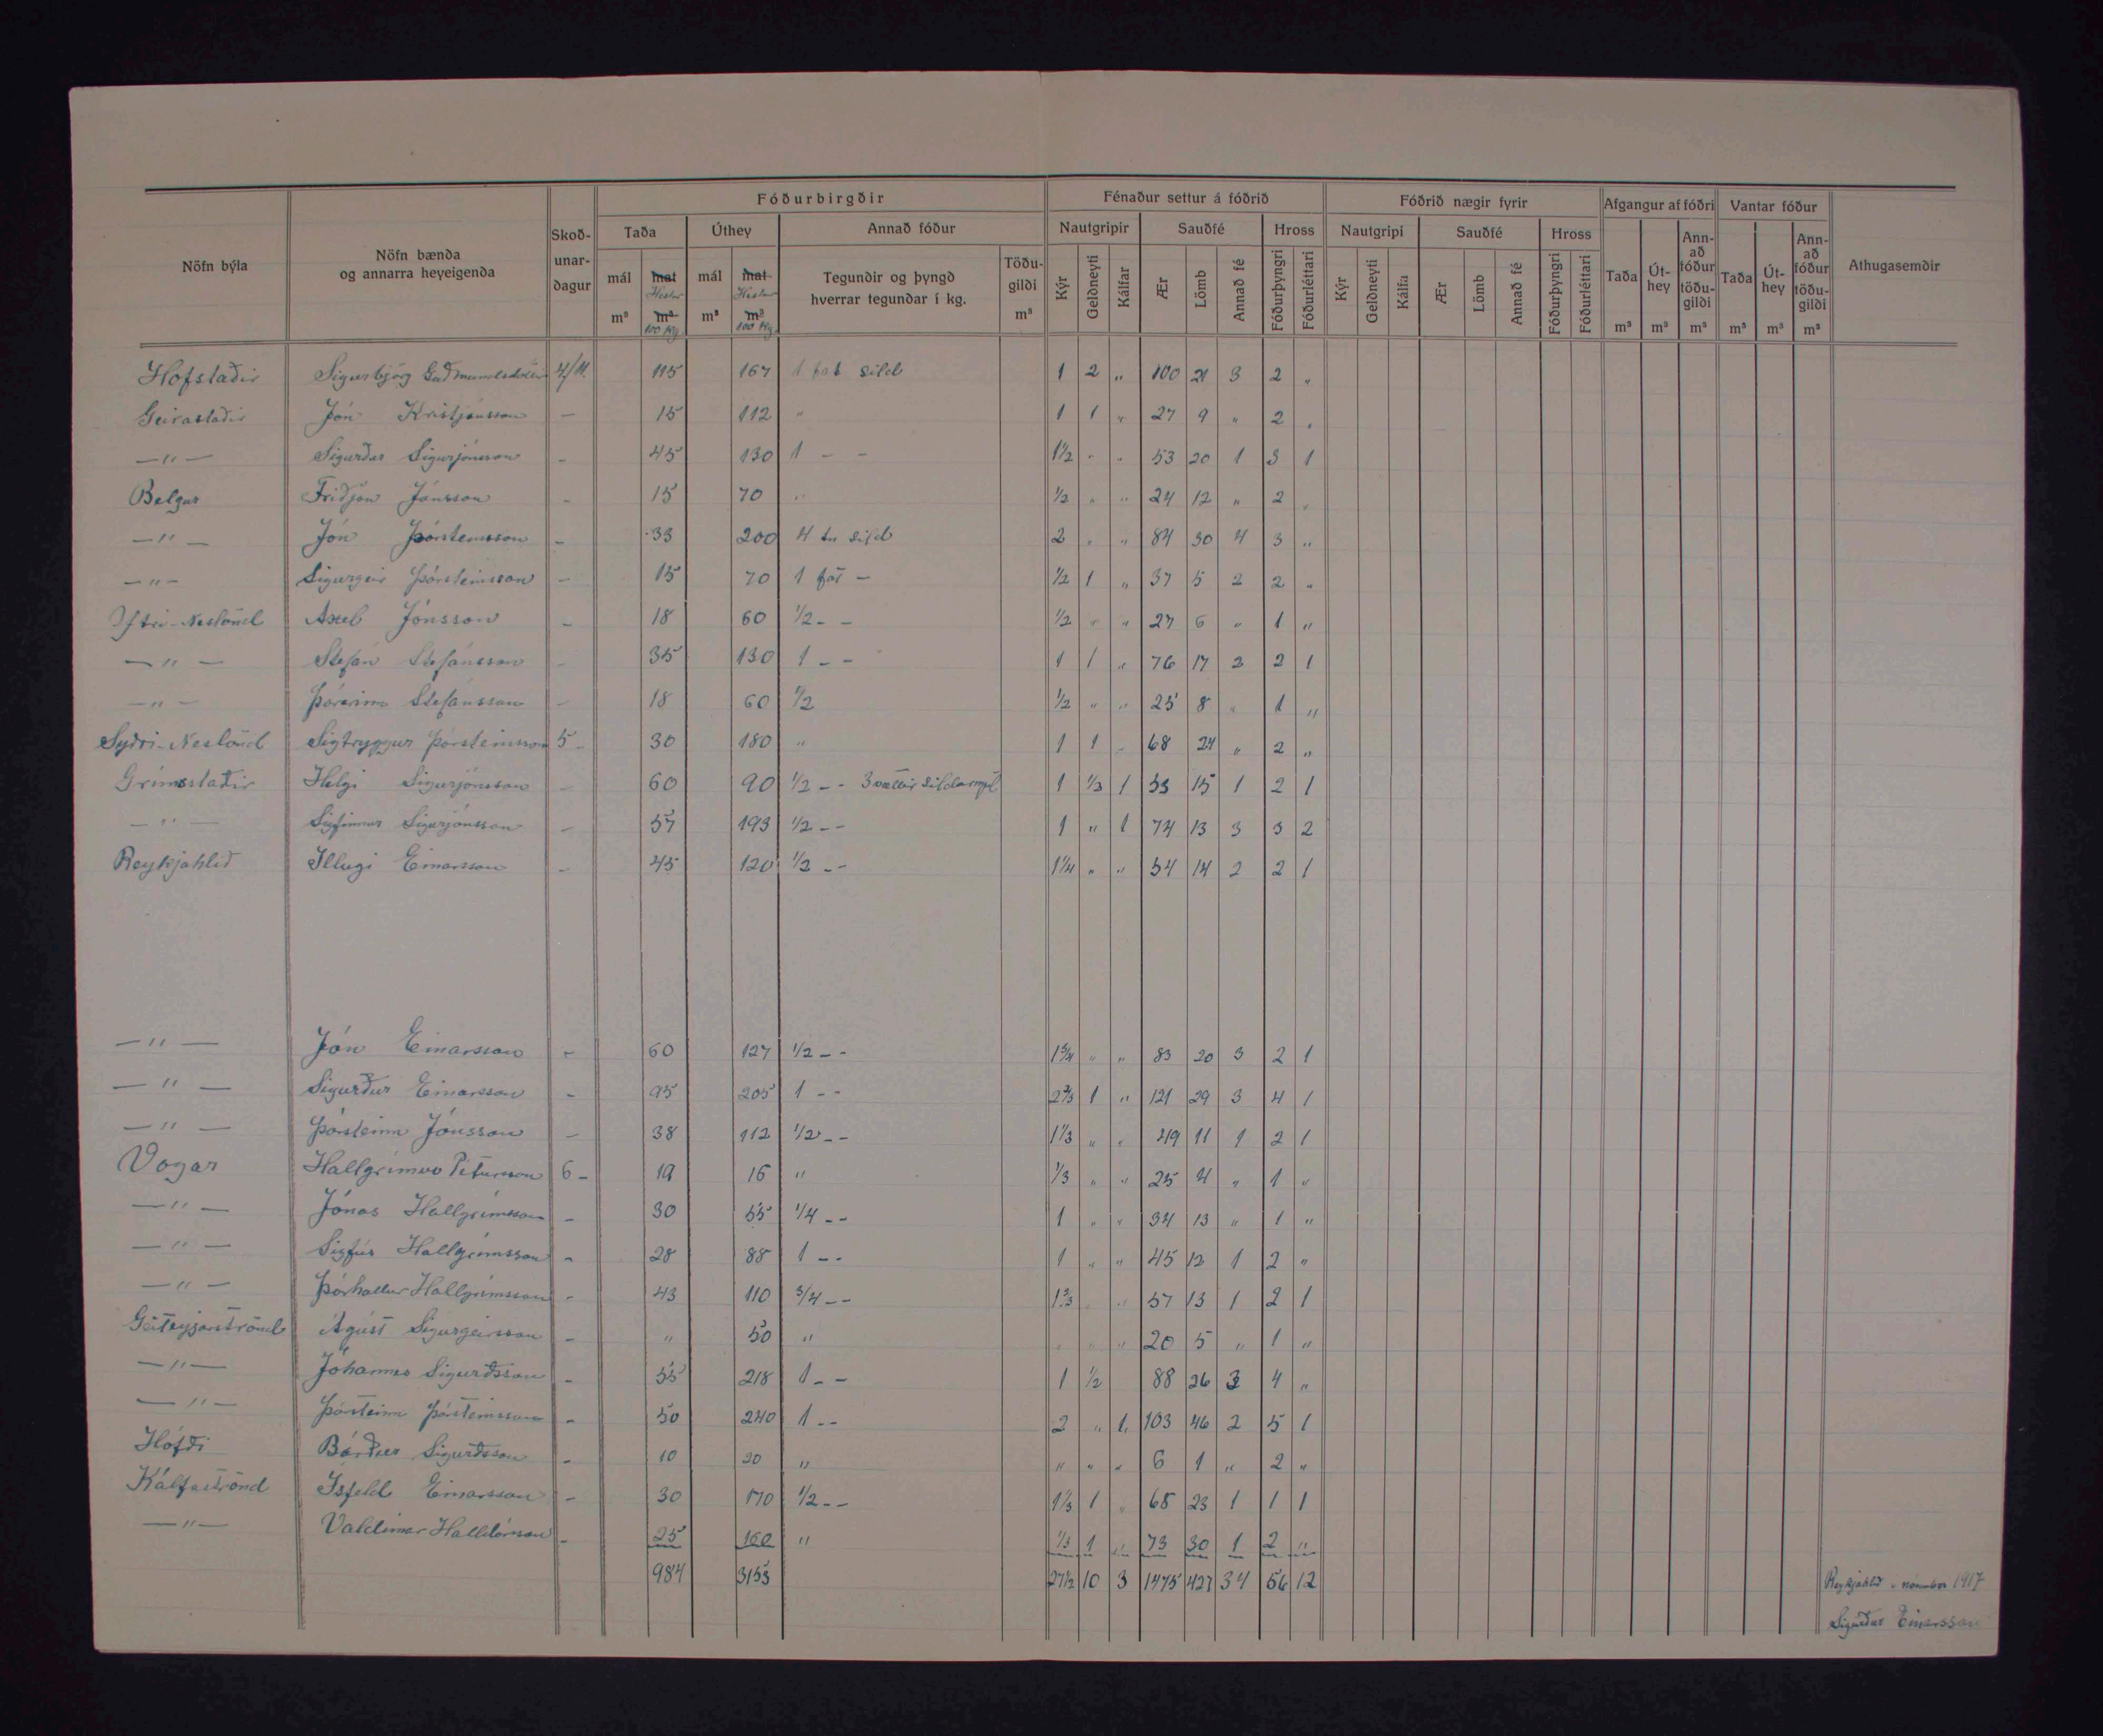 Fóðurbirgðir Fénaður settur á fóðrið Fóðrið nægir fyrir Afgangur af fóðri Vantar fóður
Nöfn býla Nöfn bænda og annarra heyeigenda Skoðunardagur Taða Úthey Annað fóður Nautgripir Sauðfé Hross Nautgripi Sauðfé Hross Taða Úthey Annað fóður töðugildi Taða Úthey Annað fóður töðugildi Athugasemdir
mál m³ mat Hestar m³ 100 Kg. mál m³ mat Hestar m³ 100 Kg. Tegundir og þyngd hverrar tegundar í kg. Töðugildi m³ Kýr Geldneyti Kálfar Ær Lömb Annað fé Fóðurþyngri Fóðurléttari Kýr Geldneyti Kálfa Ær Lömb Annað fé Fóðurþyngri Fóðurléttari m³ m³ m³ m³ m³ m³
Hofstaðir Sigurbjörg Guðmundsdóttir 4/11. 115 167 1 fat síld 1 2 „ 100 21 3 2 „
Geirastaðir Jón Kristjánsson – 15 112 „ 1 1 „ 27 9 „ 2 „
—„— Sigurður Sigurjónsson – 45 130 1 – – 1½ „ „ 53 20 1 3 1
Belgur Friðjón Jónsson – 15 70 „ ½ „ „ 24 12 „ 2 „
—„— Jón Þórsteinsson – 33 200 4 tn síld 2 „ „ 84 30 4 3 „
—„— Sigurgeir Þórsteinsson – 15 70 1 fat – ½ 1 „ 37 5 2 2 „
Ytri-Neslönd Axel Jónsson – 18 60 ½ – – ½ „ „ 27 6 „ 1 „
—„— Stefán Stefánsson – 35 130 1 – – 1 1 „ 76 17 2 2 1
—„— Þórarinn Stefánsson – 18 60 ½ ½ „ „ 25 8 „ 1 „
Syðri-Neslönd Sigtryggur Þórsteinsson 5– 30 180 „ 1 1 „ 68 24 „ 2 „
Grímsstaðir Helgi Sigurjónsson – 60 90 ½ – – 3 vættir síldarmjöl 1 ⅓ 1 53 15 1 2 1
—„— Sigfinnur Sigurjónsson – 57 193 ½ – – 1 „ 1 74 13 3 3 2
Reykjahlíð Illugi Einarsson – 45 120 ½ – – 1¼ „ „ 54 14 2 2 1
—„— Jón Einarsson – 60 127 ½ – – 1¾ „ „ 83 20 3 2 1
—„— Sigurður Einarsson – 95 205 1 – – 2⅔ 1 „ 121 29 3 4 1
—„— Þórsteinn Jónsson – 38 112 ½ – – 1⅓ „ „ 49 11 1 2 1
Vogar Hallgrímur Pétursson 6– 19 16 „ ⅓ „ „ 25 4 „ 1 „
—„— Jónas Hallgrímsson – 30 55 ¼ – – 1 „ „ 34 13 „ 1 „
—„— Sigfús Hallgrímsson – 28 88 1 – – 1 „ „ 45 12 1 2 „
—„— Þórhallur Hallgrímsson – 43 110 ¾ – – 1⅔ „ „ 57 13 1 2 1
Geiteyjarströnd Ágúst Sigurgeirsson – „ 50 „ „ „ „ 20 5 „ 1 „
—„— Jóhannes Sigurðsson – 55 218 1 – – 1 ½ 88 26 3 4 „
—„— Þórsteinn Þórsteinsson – 50 240 1 – – 2 „ 1 103 46 2 5 1
Höfði Bárður Sigurðsson – 10 20 „ „ „ „ 6 1 „ 2 „
Kálfaströnd Ísfeld Einarsson – 30 170 ½ – – 1⅓ 1 „ 68 23 1 1 1
—„— Valdimar Halldórsson – 25 160 „ ⅓ 1 „ 73 30 1 2 „
984 3153 27½ 10 3 1475 427 34 56 12
Reykjahlíð – nóvember 1917
Sigurður Einarsson